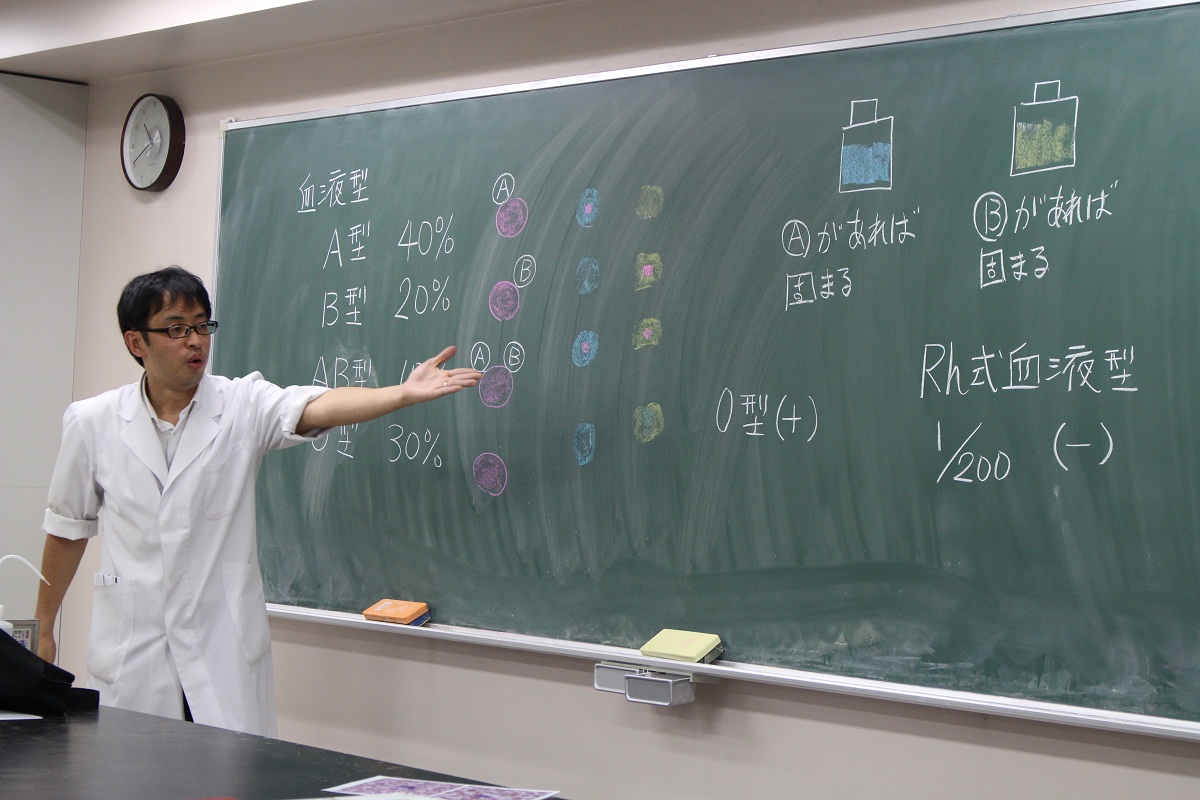 血液型
A型 40%
B型 20%
AB型
O型 30%
A
B
A B
Aがあれば
固まる
Bがあれば
固まる
O型(+)
Rh式血液型
1/200 (−)